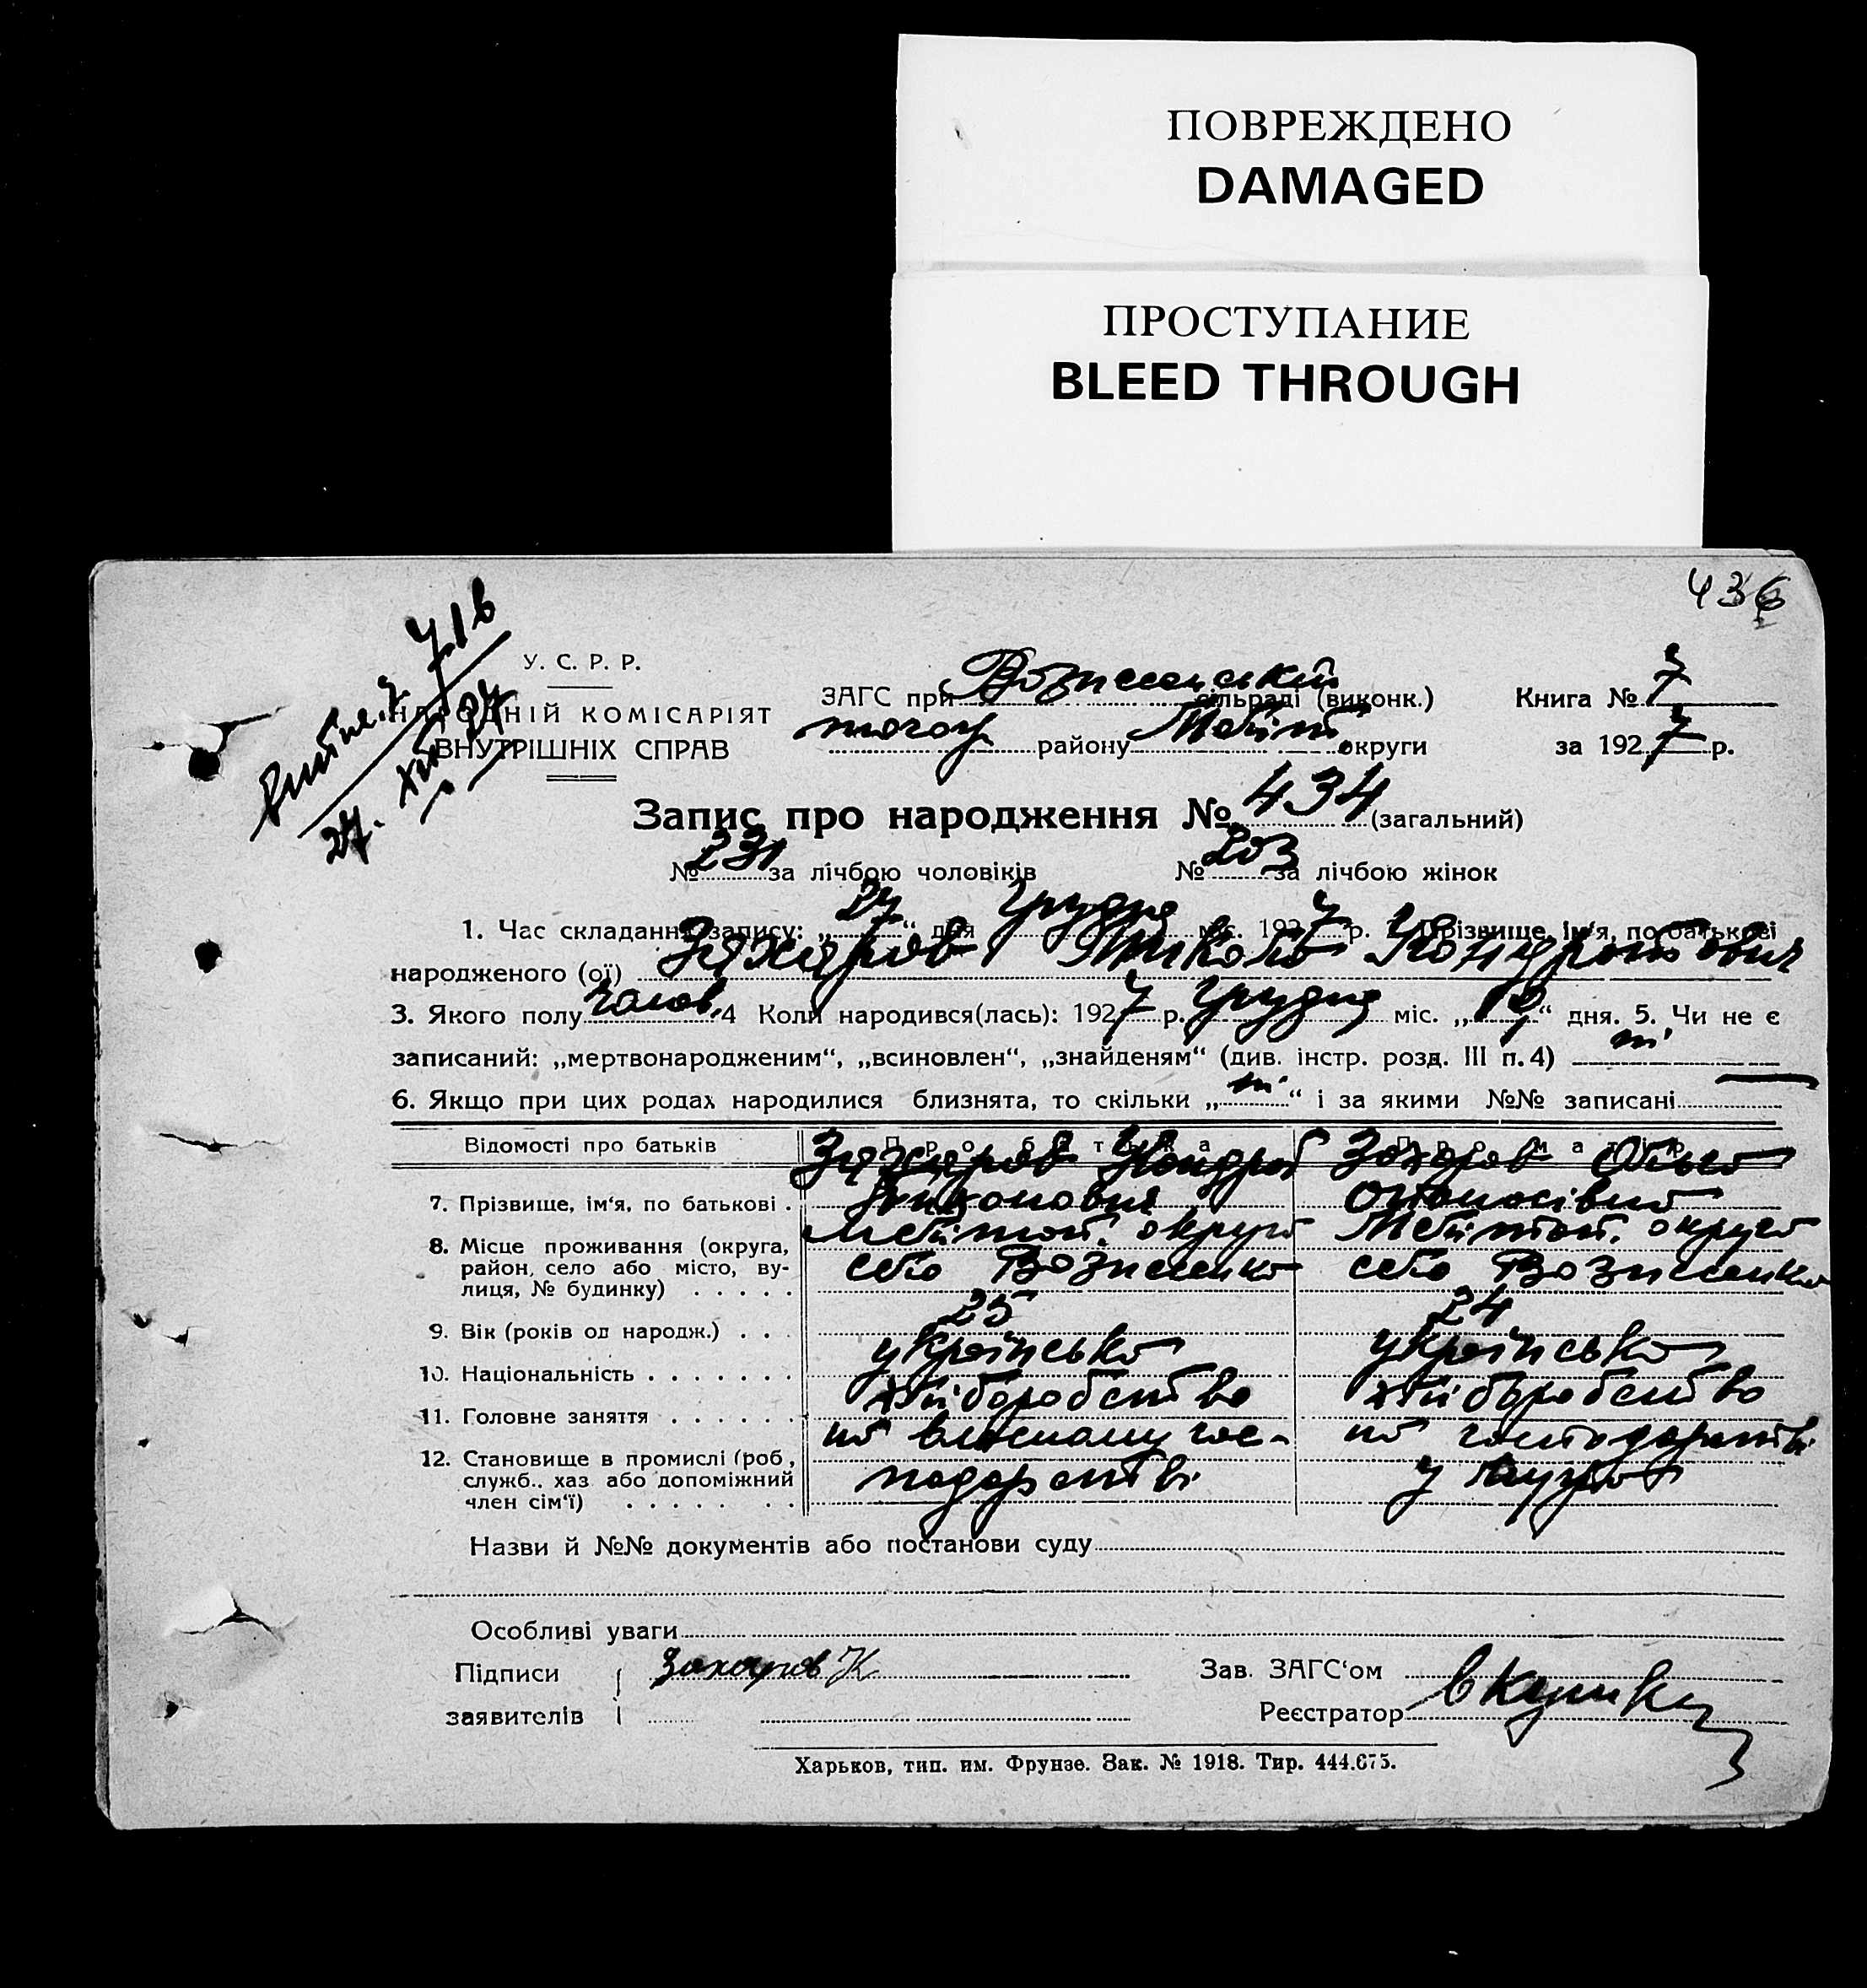 ПОВРЕЖДЕНО
DAMAGED
ПРОСТУПАНИЕ
BLEED THROUGH
436
716
27.
У. С. Р. Р.
НАРОДНІЙ КОМІСАРІЯТ
ВНУТРІШНІХ СПРАВ
ЗАГС при Вознесенській сільраді (виконк.)
району Меліт округи
Книга № 7
за 1927 р.
Запис про народження № 434 (загальний)
№ 231 за лічбою чоловіків № 203 за лічбою жінок
1. Час складання запису: „27“ дня Грудня міс. 1927 р. 2. Прізвище, ім'я, по батькові
народженого (ої) Захаров Микола Кондратович
3. Якого полу чолов. 4 Коли народився(лась): 1927 р. Грудня міс. „19“ дня. 5. Чи не є
записаний: „мертвонародженим“, „всиновлен“, „знайденям“ (див. інстр. розд. III п. 4) ні
6. Якщо при цих родах народилися близнята, то скільки „ні“ і за якими №№ записані
Відомості про батьків Про батька Про матір
7. Прізвище, ім'я, по батькові . Захаров Кондрат Захарова
8. Місце проживання (округа, район, село або місто, вулиця, № будинку) . . . . . Мелітоп. округа село Вознесенка Мелітоп. округа село Вознесенка
9. Вік (років од народж.) . . . 25 24
10. Національність . . . . . . . українська українська
11. Головне заняття . . . . . . хліборобство хліборобство
12. Становище в промислі (роб., служб.. хаз або допоміжний член сім'ї) . . . . . . . на власному господарстві на господарстві у
Назви й №№ документів або постанови суду
Особливі уваги
Підписи Захаров К Зав. ЗАГС'ом
заявителів Реєстратор
Харьков, тип. им. Фрунзе. Зак. № 1918. Тир. 444.675.